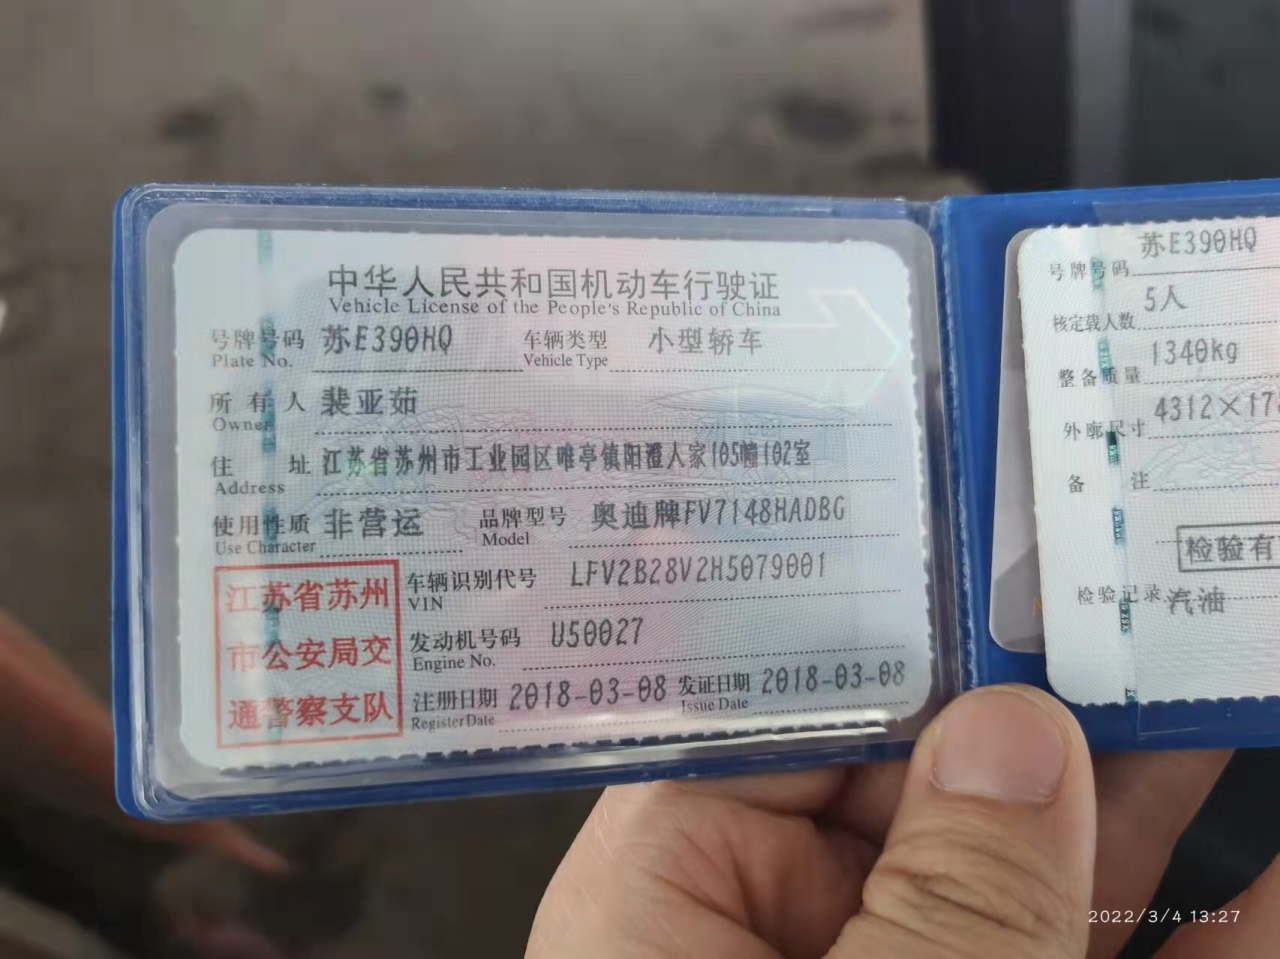 中华人民共和国机动车行驶证
Vehicle License of the People's Republic of China
号牌号码 苏E390HQ 车辆类型 小型轿车
Plate No. Vehicle Type
所有人 裴亚茹
Owner
住址 江苏省苏州市工业园区唯亭镇阳澄人家105幢102室
Address
使用性质 非营运 品牌型号 奥迪牌FV7148HADBG
Use Character Model
江苏省苏州
市公安局交
通警察支队
车辆识别代号 LFV2B28V2H5079001
VIN
发动机号码 U50027
Engine No.
注册日期 2018-03-08 发证日期 2018-03-08
Register Date Issue Date
号牌号码 苏E390HQ
核定载人数 5人
整备质量 1340kg
外廓尺寸 4312×17
备注
检验有
检验记录 汽油
2022/3/4 13:27